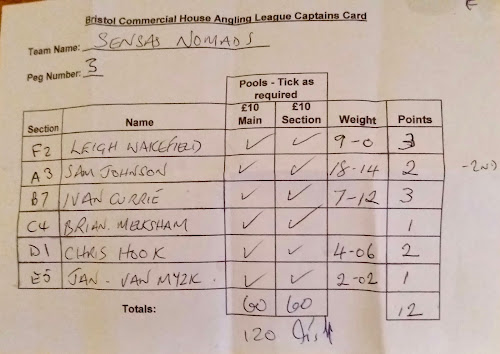 Bristol Commercial House Angling League Captains Card
Team Name: SENSAS NOMADS
Peg Number: 3
Pools - Tick as required
Section Name £10 Main £10 Section Weight Points
F2 LEIGH WAKEFIELD ✓ ✓ 9-0 3
A3 SAM JOHNSON ✓ ✓ 18-14 2 -2ND
B7 IVAN CURRIE ✓ ✓ 7-12 3
C4 BRIAN. MELKSHAM ✓ ✓ 1
D1 CHRIS HOOK ✓ ✓ 4-06 2
E5 JAN. VAN MYZK. ✓ ✓ 2-02 1
Totals: 60 60 12
120